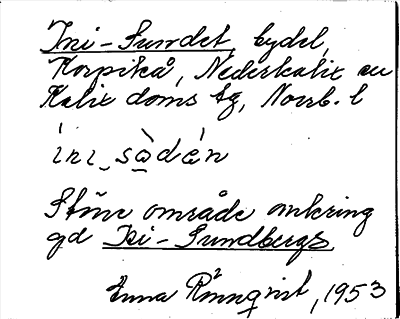 Ini-Sundet, bydel,
Korpikå, Nederkalix sn
Kalix doms sg, Norrb. l
ini‿sødǝn
Större område omkring
gd Ini-Sundbergs
Rönnqvist, 1953